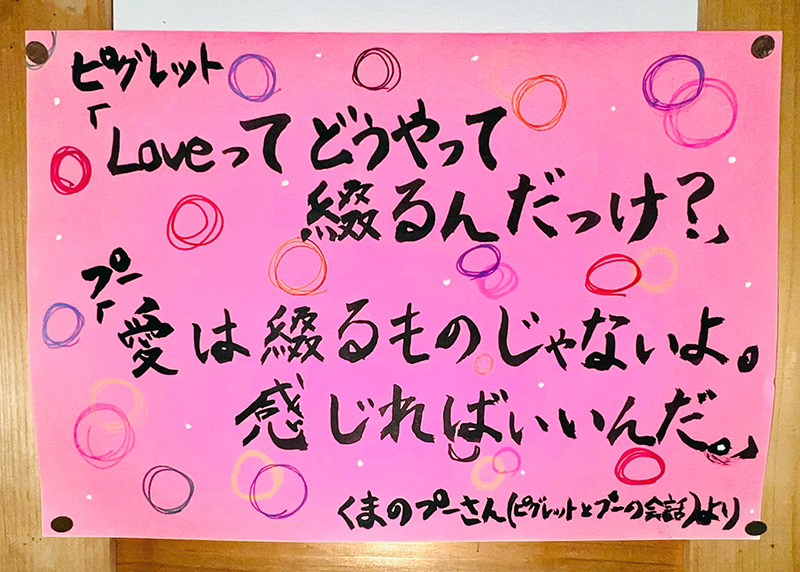 ピグレット
「Loveってどうやって
綴るんだっけ?」
プー
「愛は綴るものじゃないよ。
感じればいいんだ。」
くまのプーさん(ピグレットとプーの会話)より